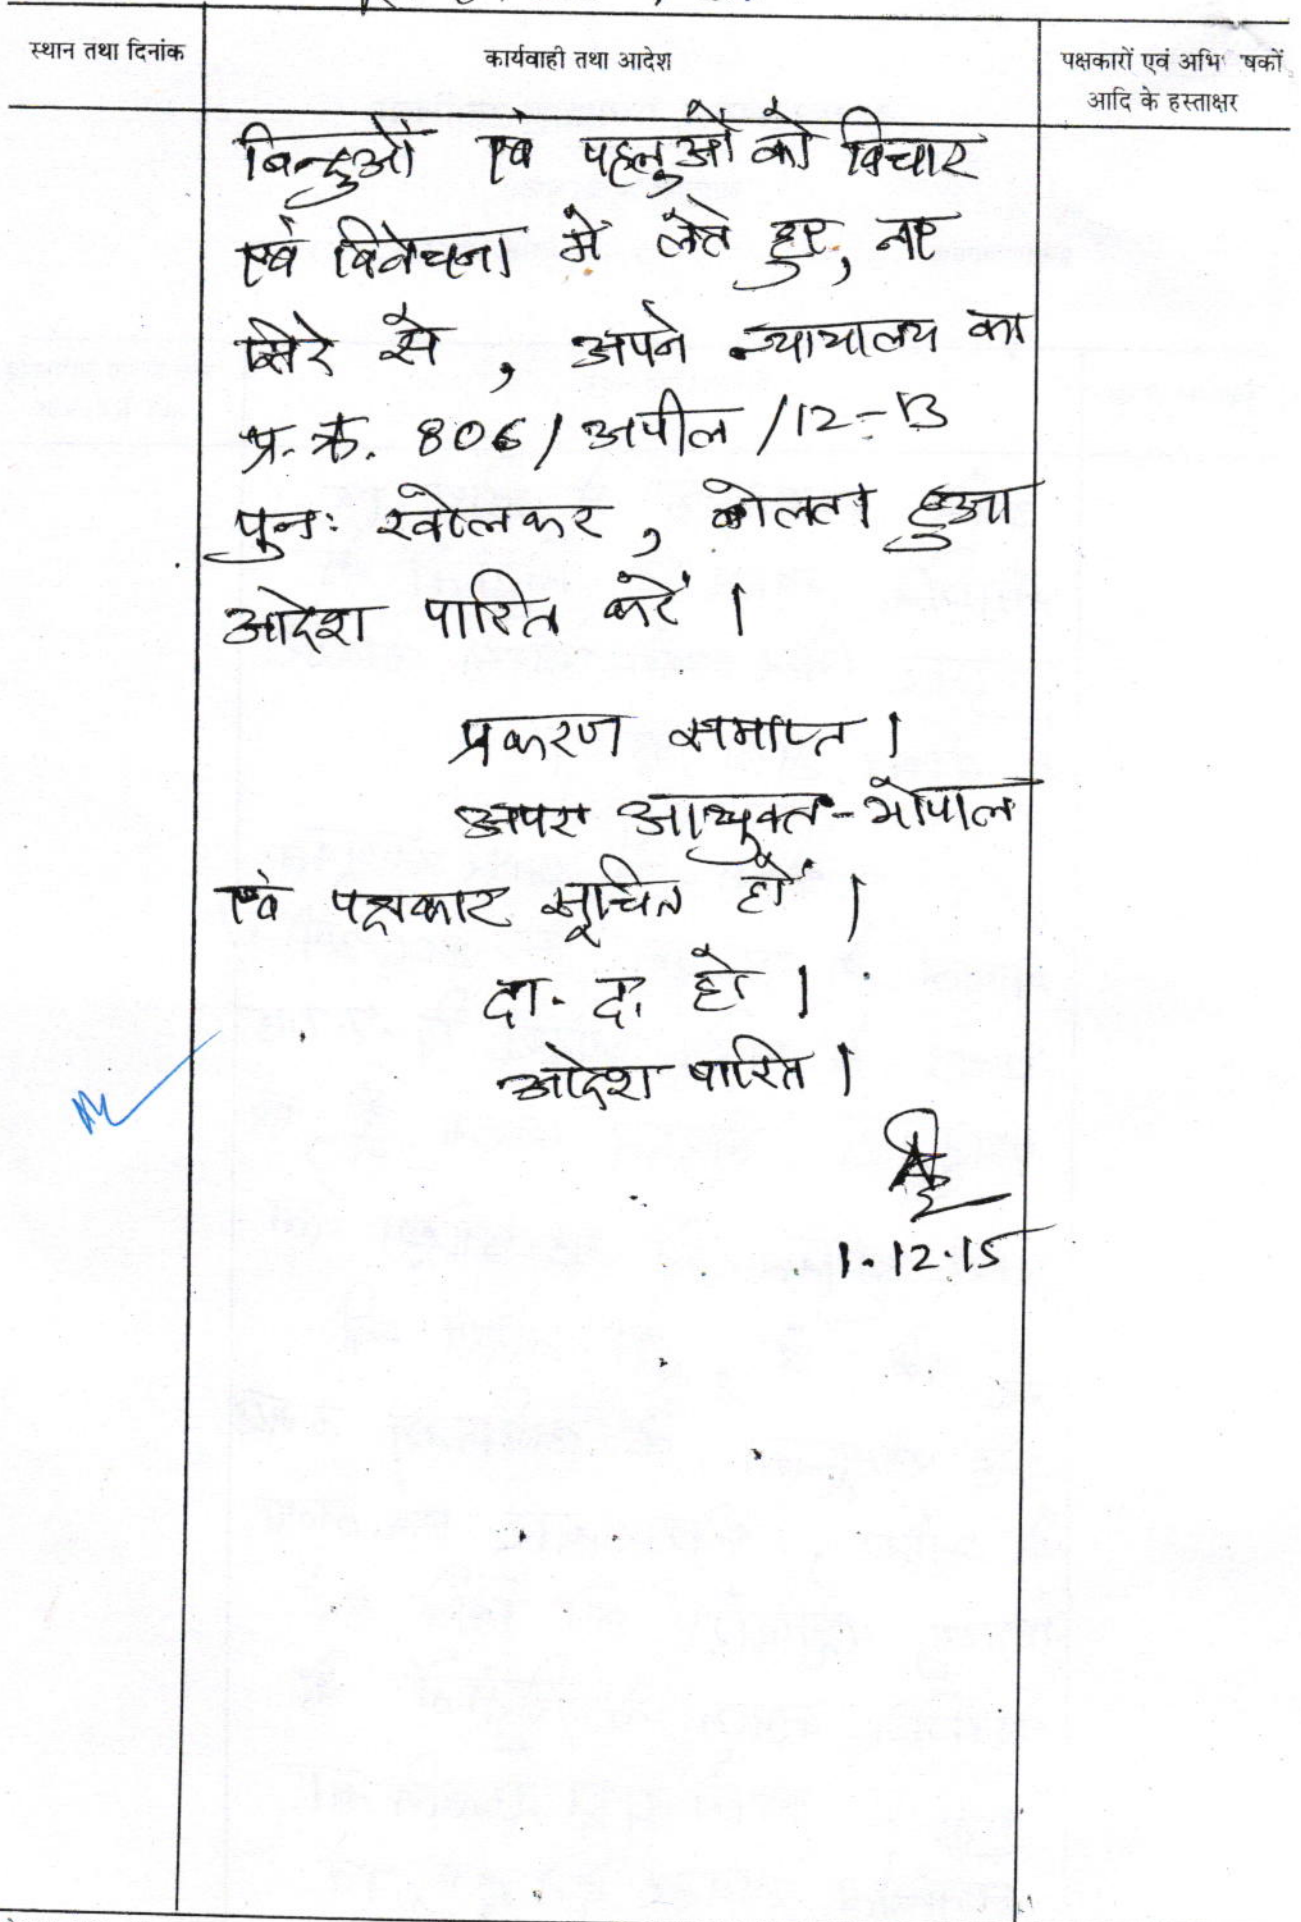 स्थान तथा दिनांक
कार्यवाही तथा आदेश
पक्षकारों एवं अभि षकों
आदि के हस्ताक्षर
बिन्दुओं एवं पहलुओं को विचार
एवं विवेचना में लेते हुए, नए
सिरे से, अपने न्यायालय का
प्र. क्र. 806/अपील/12-13
पुनः खोलकर, बोलता हुआ
आदेश पारित करें।
प्रकरण समाप्त।
अपर आयुक्त-भोपाल
एवं पक्षकार सूचित हों।
दा. द. हो।
आदेश पारित।
1.12.15